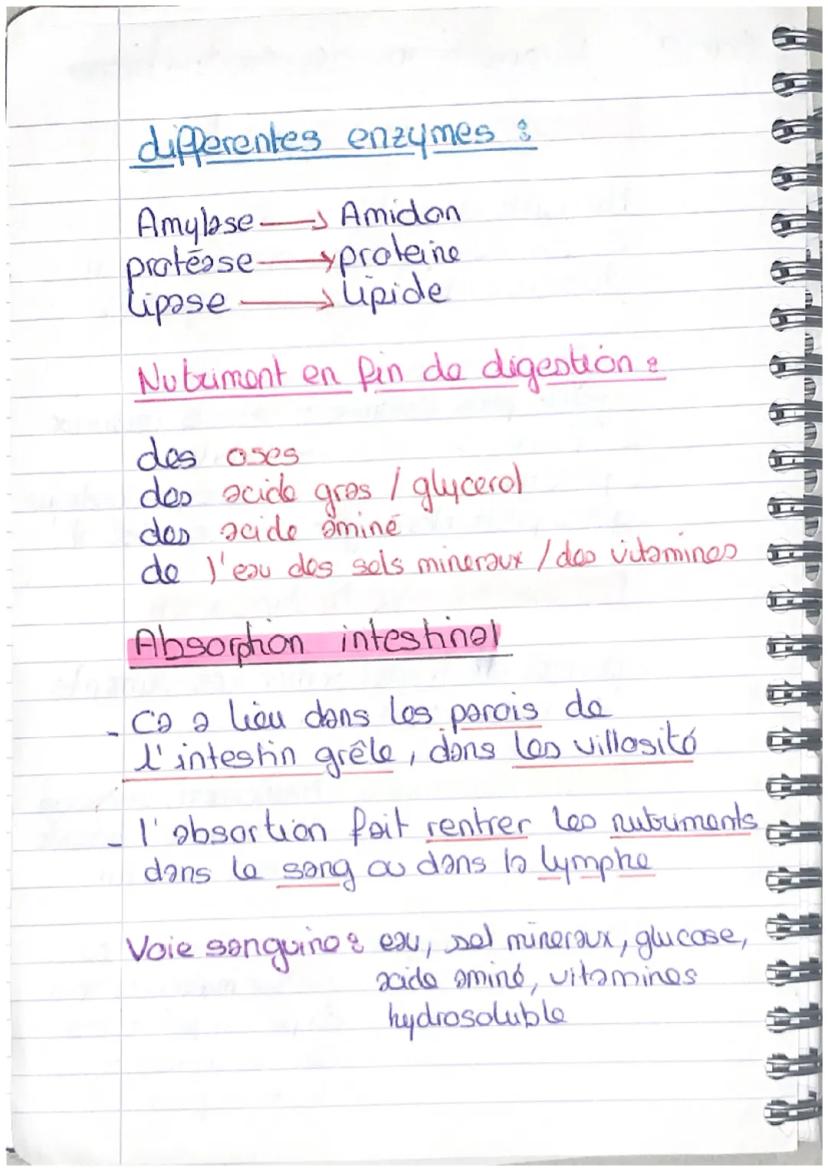 differentes enzymes :
Amylase → Amidon
protéase → proteine
lipase → lipide
Nutriment en fin de digestion :
des oses
des acide gras / glycerol
des acide aminé
de l'eau des sels mineraux / des vitamines
Absorption intestinal
- Ca a lieu dans les parois de
l'intestin grêle, dans les villosité
- l'absortion fait rentrer les nutriments
dans le sang ou dans la lymphe
Voie sanguine : eau, sel mineraux, glucose,
acide aminé, vitamines
hydrosoluble